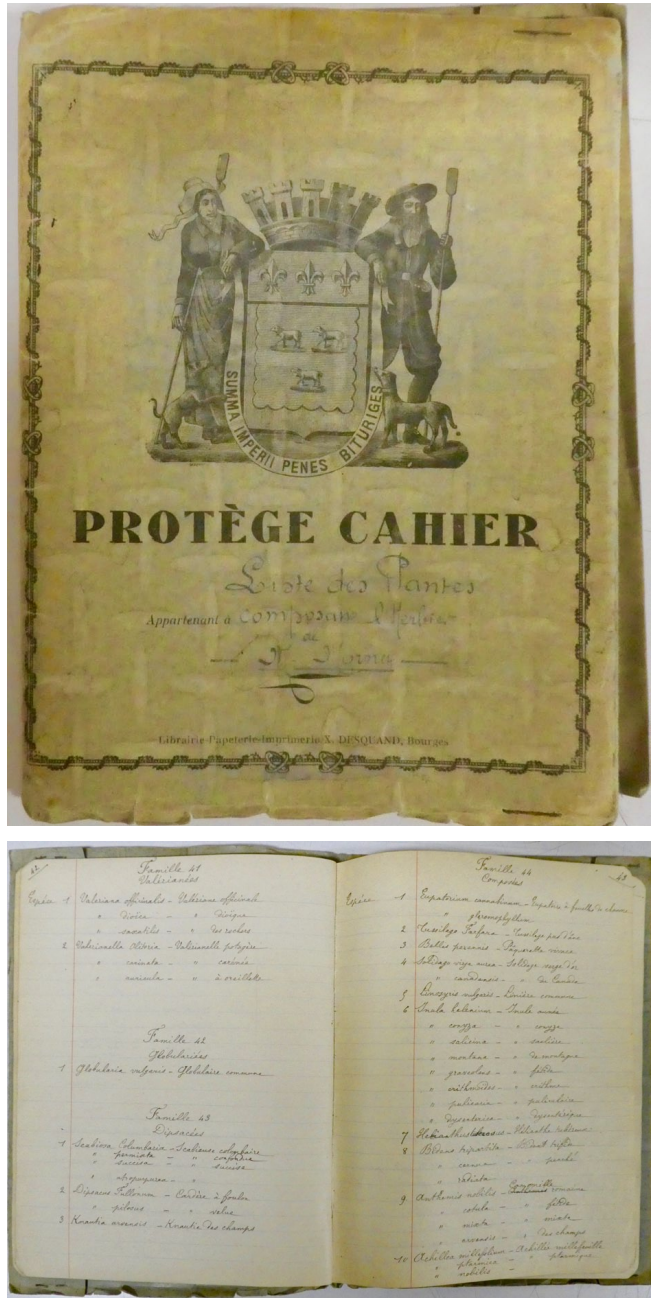 SUMMA IMPERII PENES BITURIGES
PROTÈGE CAHIER
Liste des Plantes
Appartenant à composant l'Herbier
de
Librairie-Papeterie-Imprimerie X. DESQUAND, Bourges
42
Famille 41
Valérianées
Espèce 1 Valeriana officinalis - Valériane officinale
" dioïca - " dioïque
" saxatilis - " des rochers
2 Valerianella olitoria - Valérianelle potagère
" carinata - " carénée
" auricula - " à oreillette
Famille 42
Globulariées
1 Globularia vulgaris - Globulaire commune
Famille 43
Dipsacées
1 Scabiosa Columbaria - Scabieuse colombaire
" permixta - " confondue
" succisa - " succise
" "
2 Dipsacus Fullonum - Cardère à foulon
" pilosus - " velue
3 Knautia arvensis - Knautie des champs
43
Famille 44
Composées
Espèce 1 Eupatorium cannabinum - Eupatoire à feuilles de chanvre
"
2 Tussilago Farfara - Tussilage pas d'âne
3 Bellis perennis - Pâquerette vivace
4 Solidago virga aurea - Solidage verge d'or
" canadensis - " du Canada
5 Linosyris vulgaris - Linière commune
6 Inula helenium - Inule aunée
" conyza - " conyze
" salicina - " saulière
" montana - " de montagne
" graveolens - " fétide
" crithmoides - " crithme
" pulicaria - " pulicaire
" dysenterica - " dysentérique
7 Helianthus - Hélianthe
8 Bidens tripartita - Bident triparti
" cernua - " penché
" radiata
9 Anthemis nobilis - Camomille romaine
" cotula - " fétide
" mixta - " mixte
" arvensis - " des champs
10 Achillea millefolium - Achillée millefeuille
" ptarmica - " ptarmique
" nobilis - "